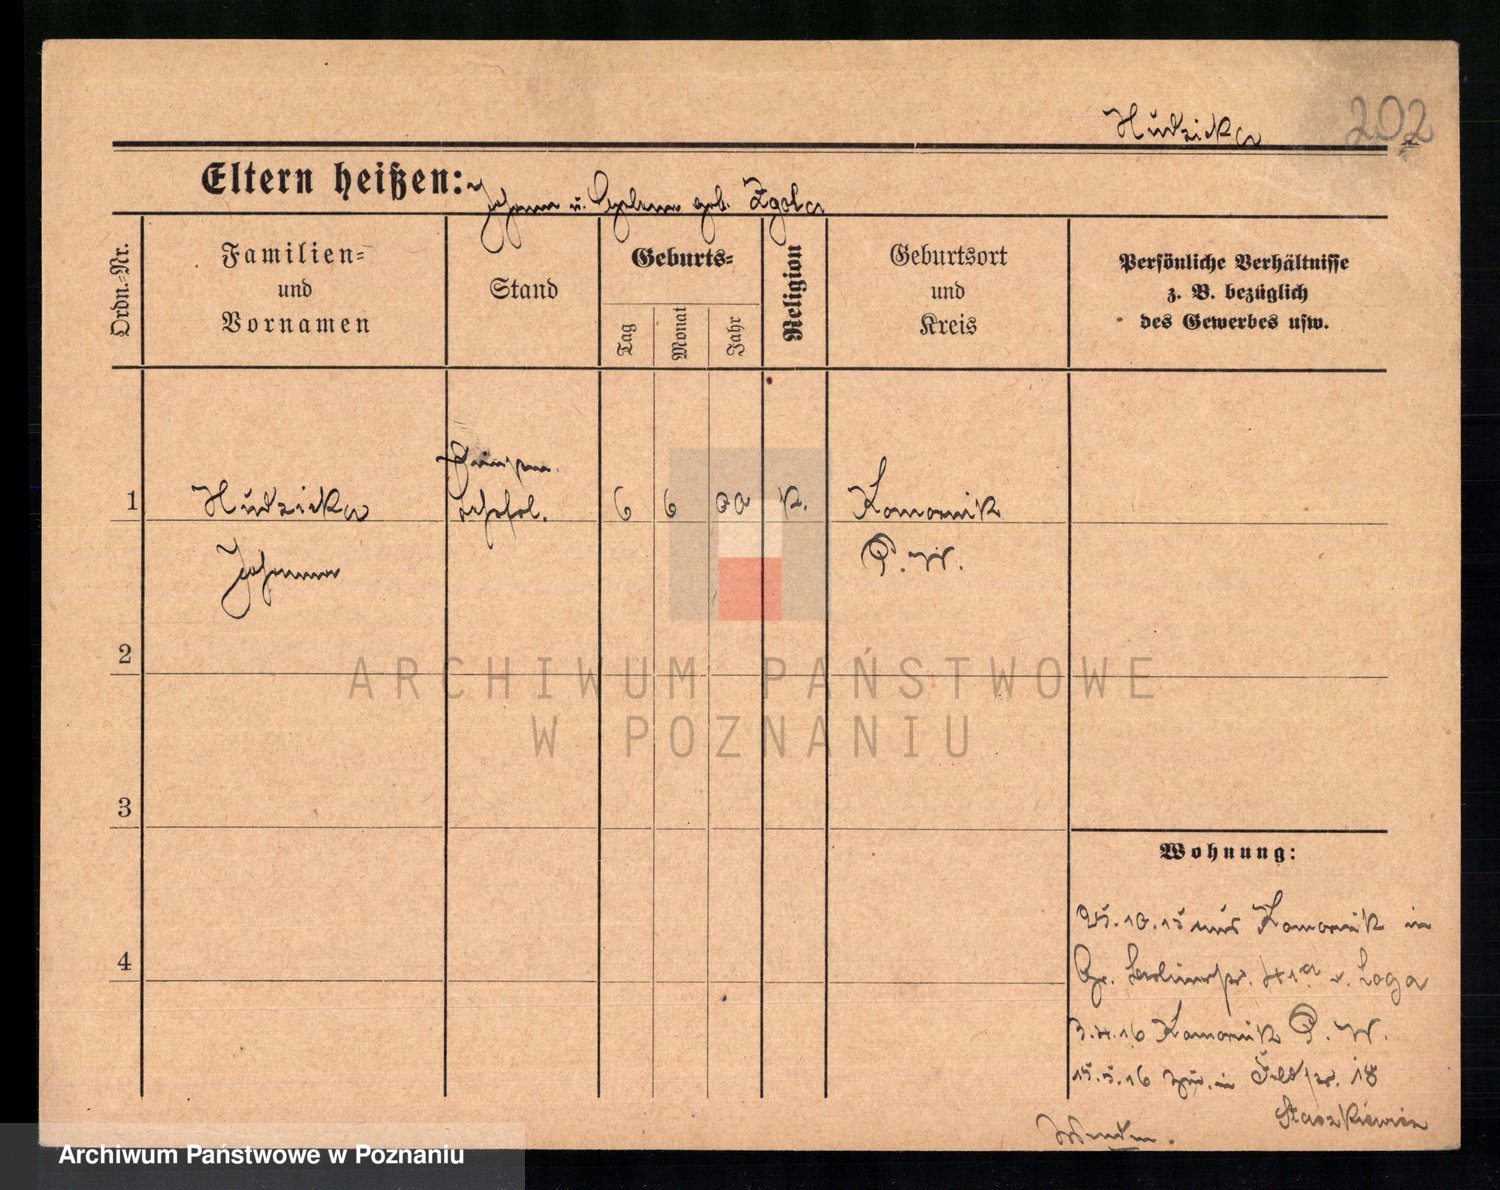 Hudzicka 202
Eltern heißen: Johann u. Helena geb. Zgola
Ordn.-Nr.
Familien-
und
Vornamen
Stand
Geburts-
Tag
Monat
Jahr
Religion
Geburtsort
und
Kreis
Persönliche Verhältnisse
z. B. bezüglich
des Gewerbes usw.
1 Hudzicka 6 6 00 K. Komornik
Johanna P. W.
2
3
4
Wohnung:
25.10.15 aus Komornik in
Gr. Berlinerstr. 41a b. Loga
3.4.16 Komornik P. W.
15.5.16 zur. in Feldstr. 18
Staszkiewicz
ARCHIWUM PAŃSTWOWE
W POZNANIU
Archiwum Państwowe w Poznaniu